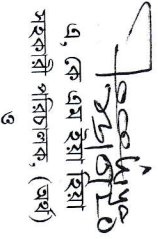 এ, কে এম ইয়া হিয়া
সহকারী পরিচালক, (অর্থ)
ও